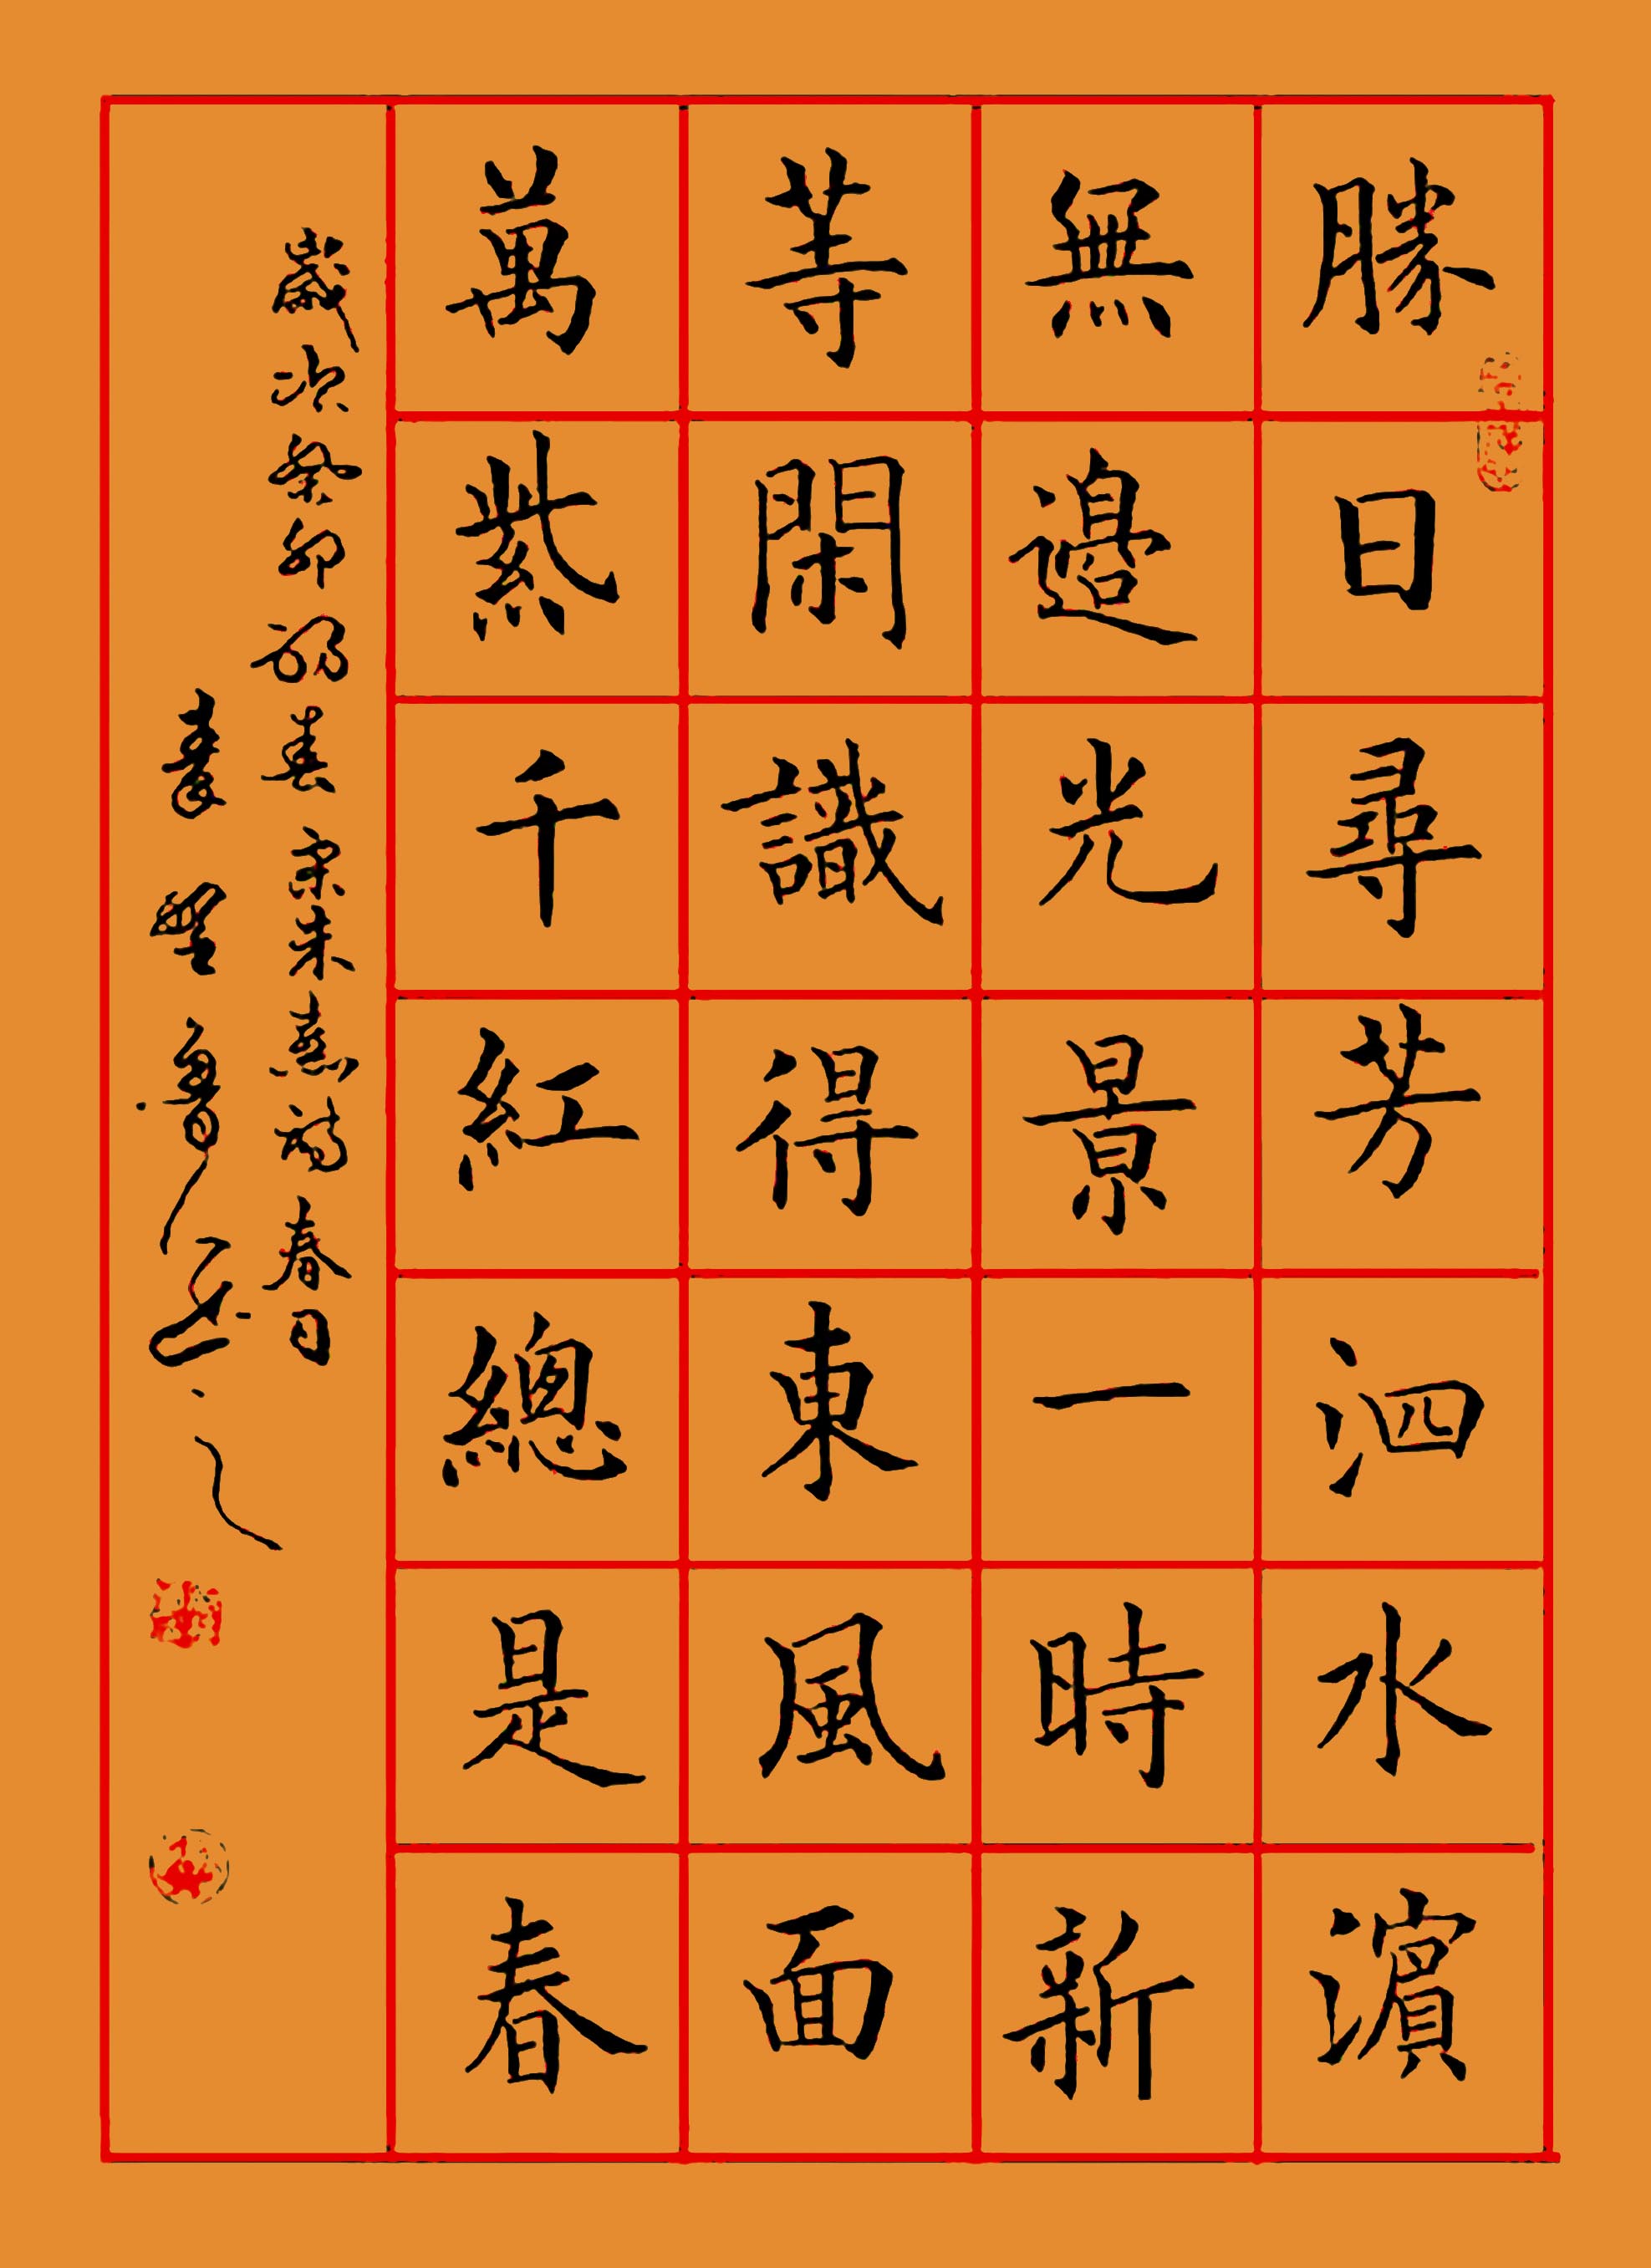 勝日尋芳泗水濱
無邊光景一時新
等閒識得東風面
萬紫千紅總是春
歲次癸卯初夏宋朱熹詩春日